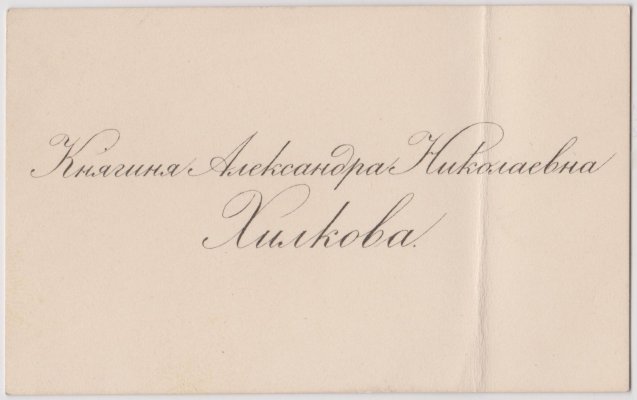 Княгиня Александра Николаевна
Хилкова.